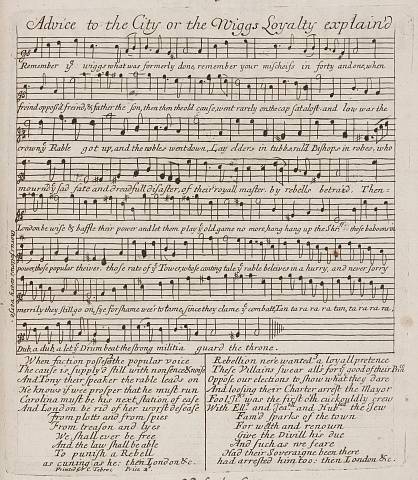 Advice to the City or the Wiggs Loyalty explain'd
Remember yᵉ wiggs what was formerly done, remember your mischeifs in forty and one, when
freind oppos'd freind, & father the son, then then the old cause went rarely on the cap sat aloft and low was the
crown, yᵉ Rable got up, and the nobles went down, Lay elders in tubbs rul'd Bishops in robes, who
mourn'd yᵉ sad fate and dreadfull disaster, of their royall master by rebells betray'd. Then
London be wise & baffle their power and let them play yᵉ old game no more, hang hang up the these baboons in
power, those popular theives, those rats of yᵉ Tower, whose canting tale yᵉ rable beleives in a hurry, and never sorry
merrily they still go on, fye for shame wee'r to tame, since they claime yᵉ combatt, Tan ta ra ra ra, tan, ta ra ra ra,
Dub a dub, a let yᵉ Drum beat the strong militia guard the throne.
When faction possess'd the popular voice
The cause is supply'd still with nonsence & noise
And Tony their speaker the rable leads on
He knows if wee prosper that he must run
Carolina must be his next station of ease
And London be rid of her worst desease
From plots and from spies
From treason and lyes
We shall ever be free
And the law shall be able
To punish a Rebell
as cuning as he: then London &c.
Rebellion nere wanted a loyall pretence
These Villains swear alls for yᵉ good of their
Oppose our elections to show what they dare
And loosing their Charter arrest the Mayor
was the first oth cuckoldly crew
With and and the Jew
Fam'd sparks of the town
For wealth and renown
Give the Divill his due
And such as we feare
Had their Soveraigne been there
had arrested him too: then London &c.